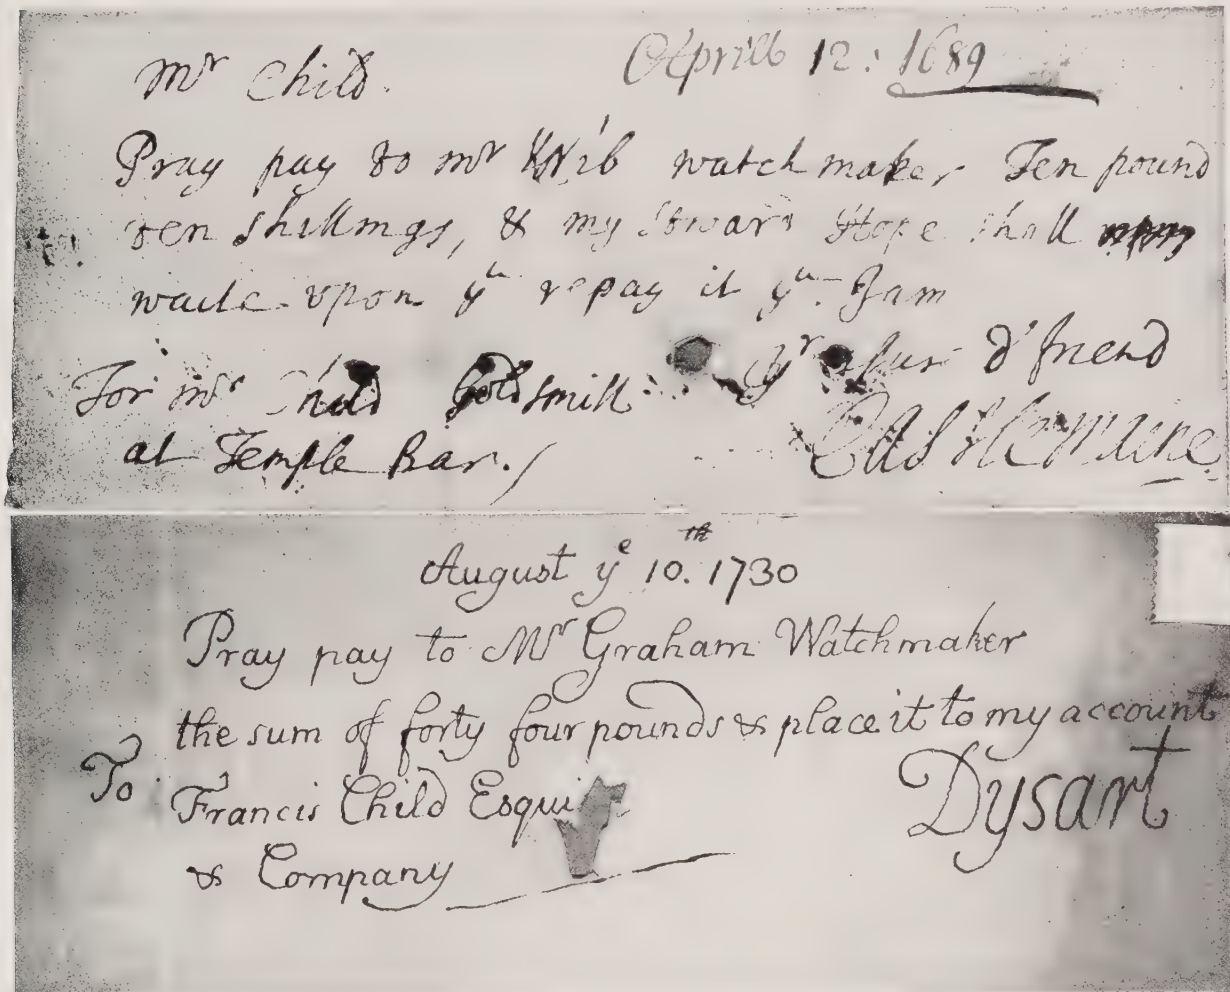 Mr Child.
Aprill 12: 1689
Pray pay to mr Knib watchmaker Ten pound
ten shillings, & my Steward Hope shall
waite upon yu repay it yu. I am
yr friend
For mr Child Goldsmith
at Temple Bar./
Castlemaine
August ye 10.th 1730
Pray pay to Mr Graham Watchmaker
the sum of forty four pounds & place it to my account
To Francis Child Esqui
& Company
Dysart